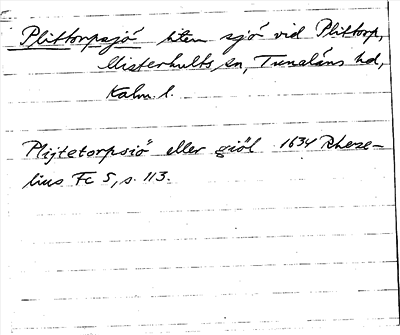 Plittorpsjö liten sjö vid Plittorp,
Misterhults sn, Tunaläns hd,
Kalm. l.
Plijtetorpsiö eller giöl 1634 Rheze-
lius Fc 5, s. 113.